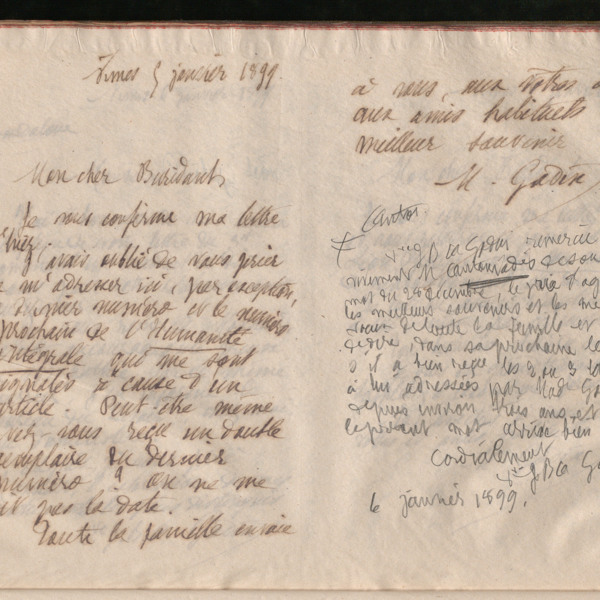 5 janvier 1899.
Mon cher
Je vous confirme ma lettre
d'hier.
J'avais oublié de vous prier
m'adresser ici, par exception,
dernier numéro et le numéro
prochain de l'Humanité
intégrale qui me sont
signalés à cause d'un
article. Peut-être même
avez-vous reçu un double
exemplaire du dernier
numéro ? On ne me
dit pas la date.
Toute la famille envoie
à vous, aux vôtres
aux amis habituels
meilleur souvenir
M. Godin
Vve J Bte Godin remercie
mot du 28 décembre, le prie d'
les meilleurs souvenirs et les
de toute la famille et
dire, dans sa prochaine
s'il a bien reçu les 2 ou 3
à lui adressées par Made
depuis environ trois ans, et
cependant mot arrive bien
Cordialement
Vve J Bte
6 janvier 1899.